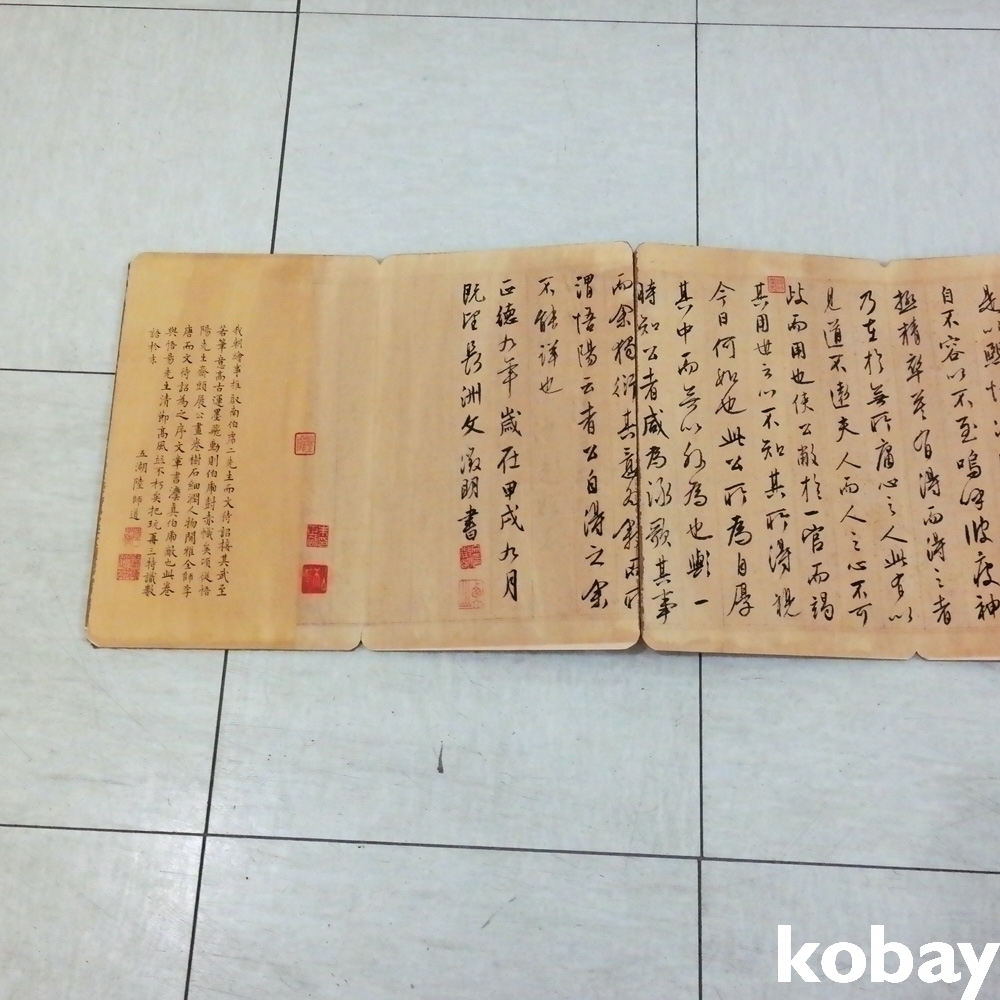 自不容以不至嗚呼彼疲神
極精卒莫有得而得之者
乃在於無所庸心之人此有以
見道不遠夫人而人之心不可
歧而用也使公敝於一官而竭
其用世之心不知其所得視
今日何如也此公所為自厚
其中而無心外為也歟一
時知公者咸為詠歌其事
而余獨衍其意
謂悟陽云者公自得之余
不能詳也
正德九年歲在甲戌九月
既望長洲文徵明書
我朝繪事推
先生而文待詔接其武至
若筆意高古運墨飛動則伯虎
陽先生齋頭展公畫卷樹石細潤人物閒雅全師李
唐而文待詔為之序文章書法真伯虎敵也此卷
與悟陽先生清節高風並不朽矣把玩再三特識數
語於末
五湖陸師道
kobay